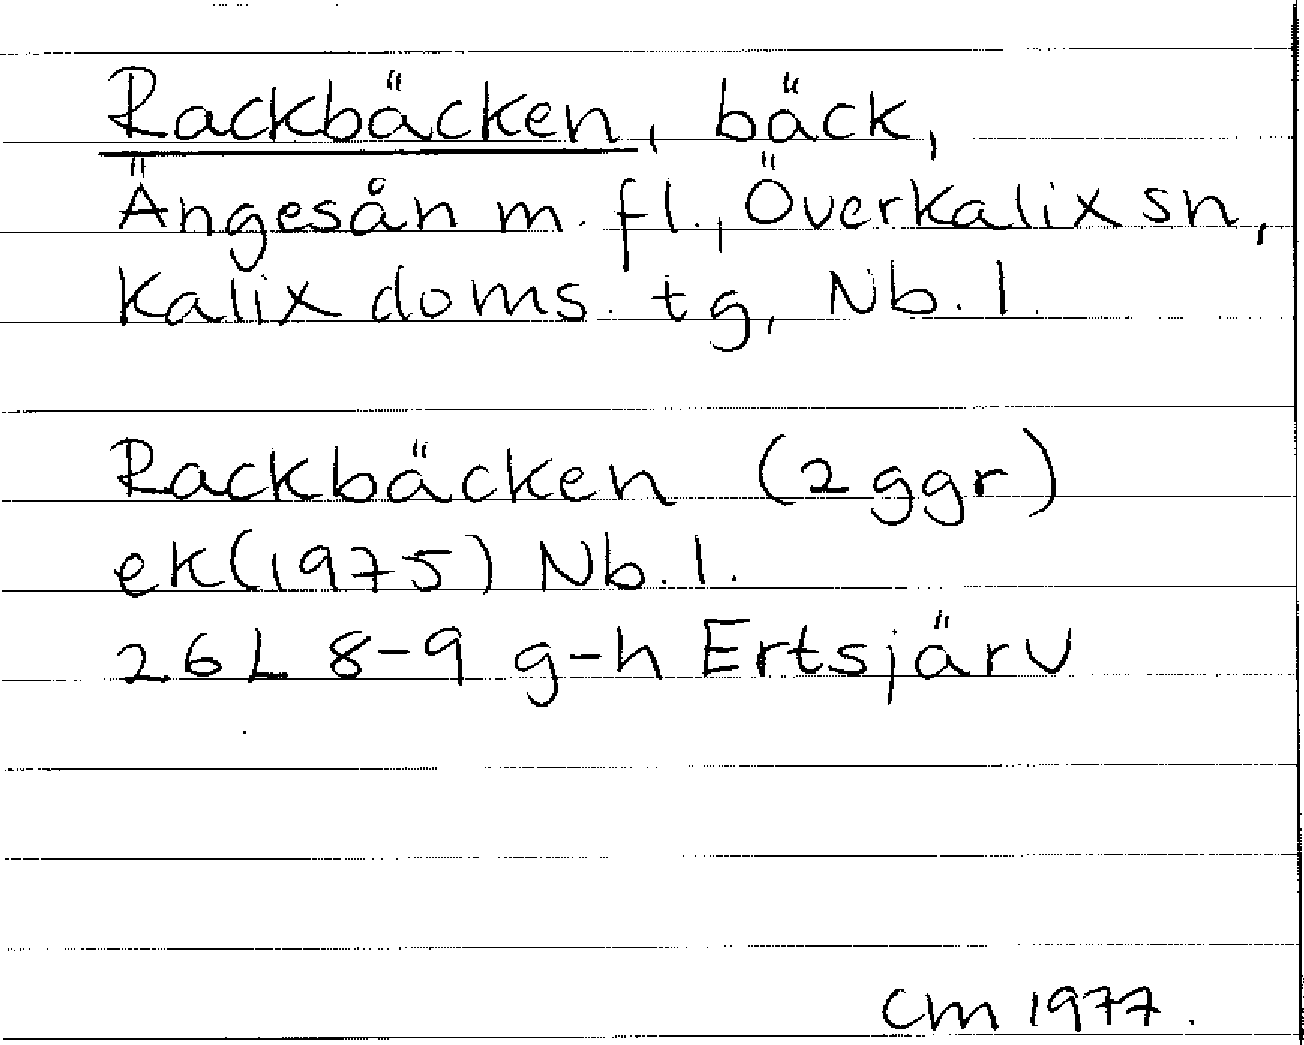 Rackbäcken, bäck,
Ängesån m. fl., Överkalix sn,
Kalix doms. tg, Nb. l.
Rackbäcken (2 ggr)
ek (1975) Nb. l.
26L 8-9 g-h Ertsjärv
CM 1977.